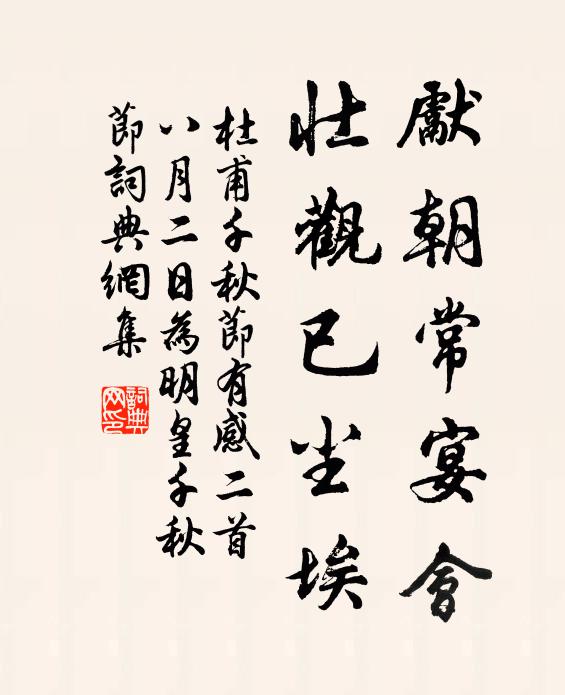 獻朝常宴會
壯觀已尘埃
杜甫千秋節有感二首
八月二日為明皇千秋
節詞典網集
詞典网印